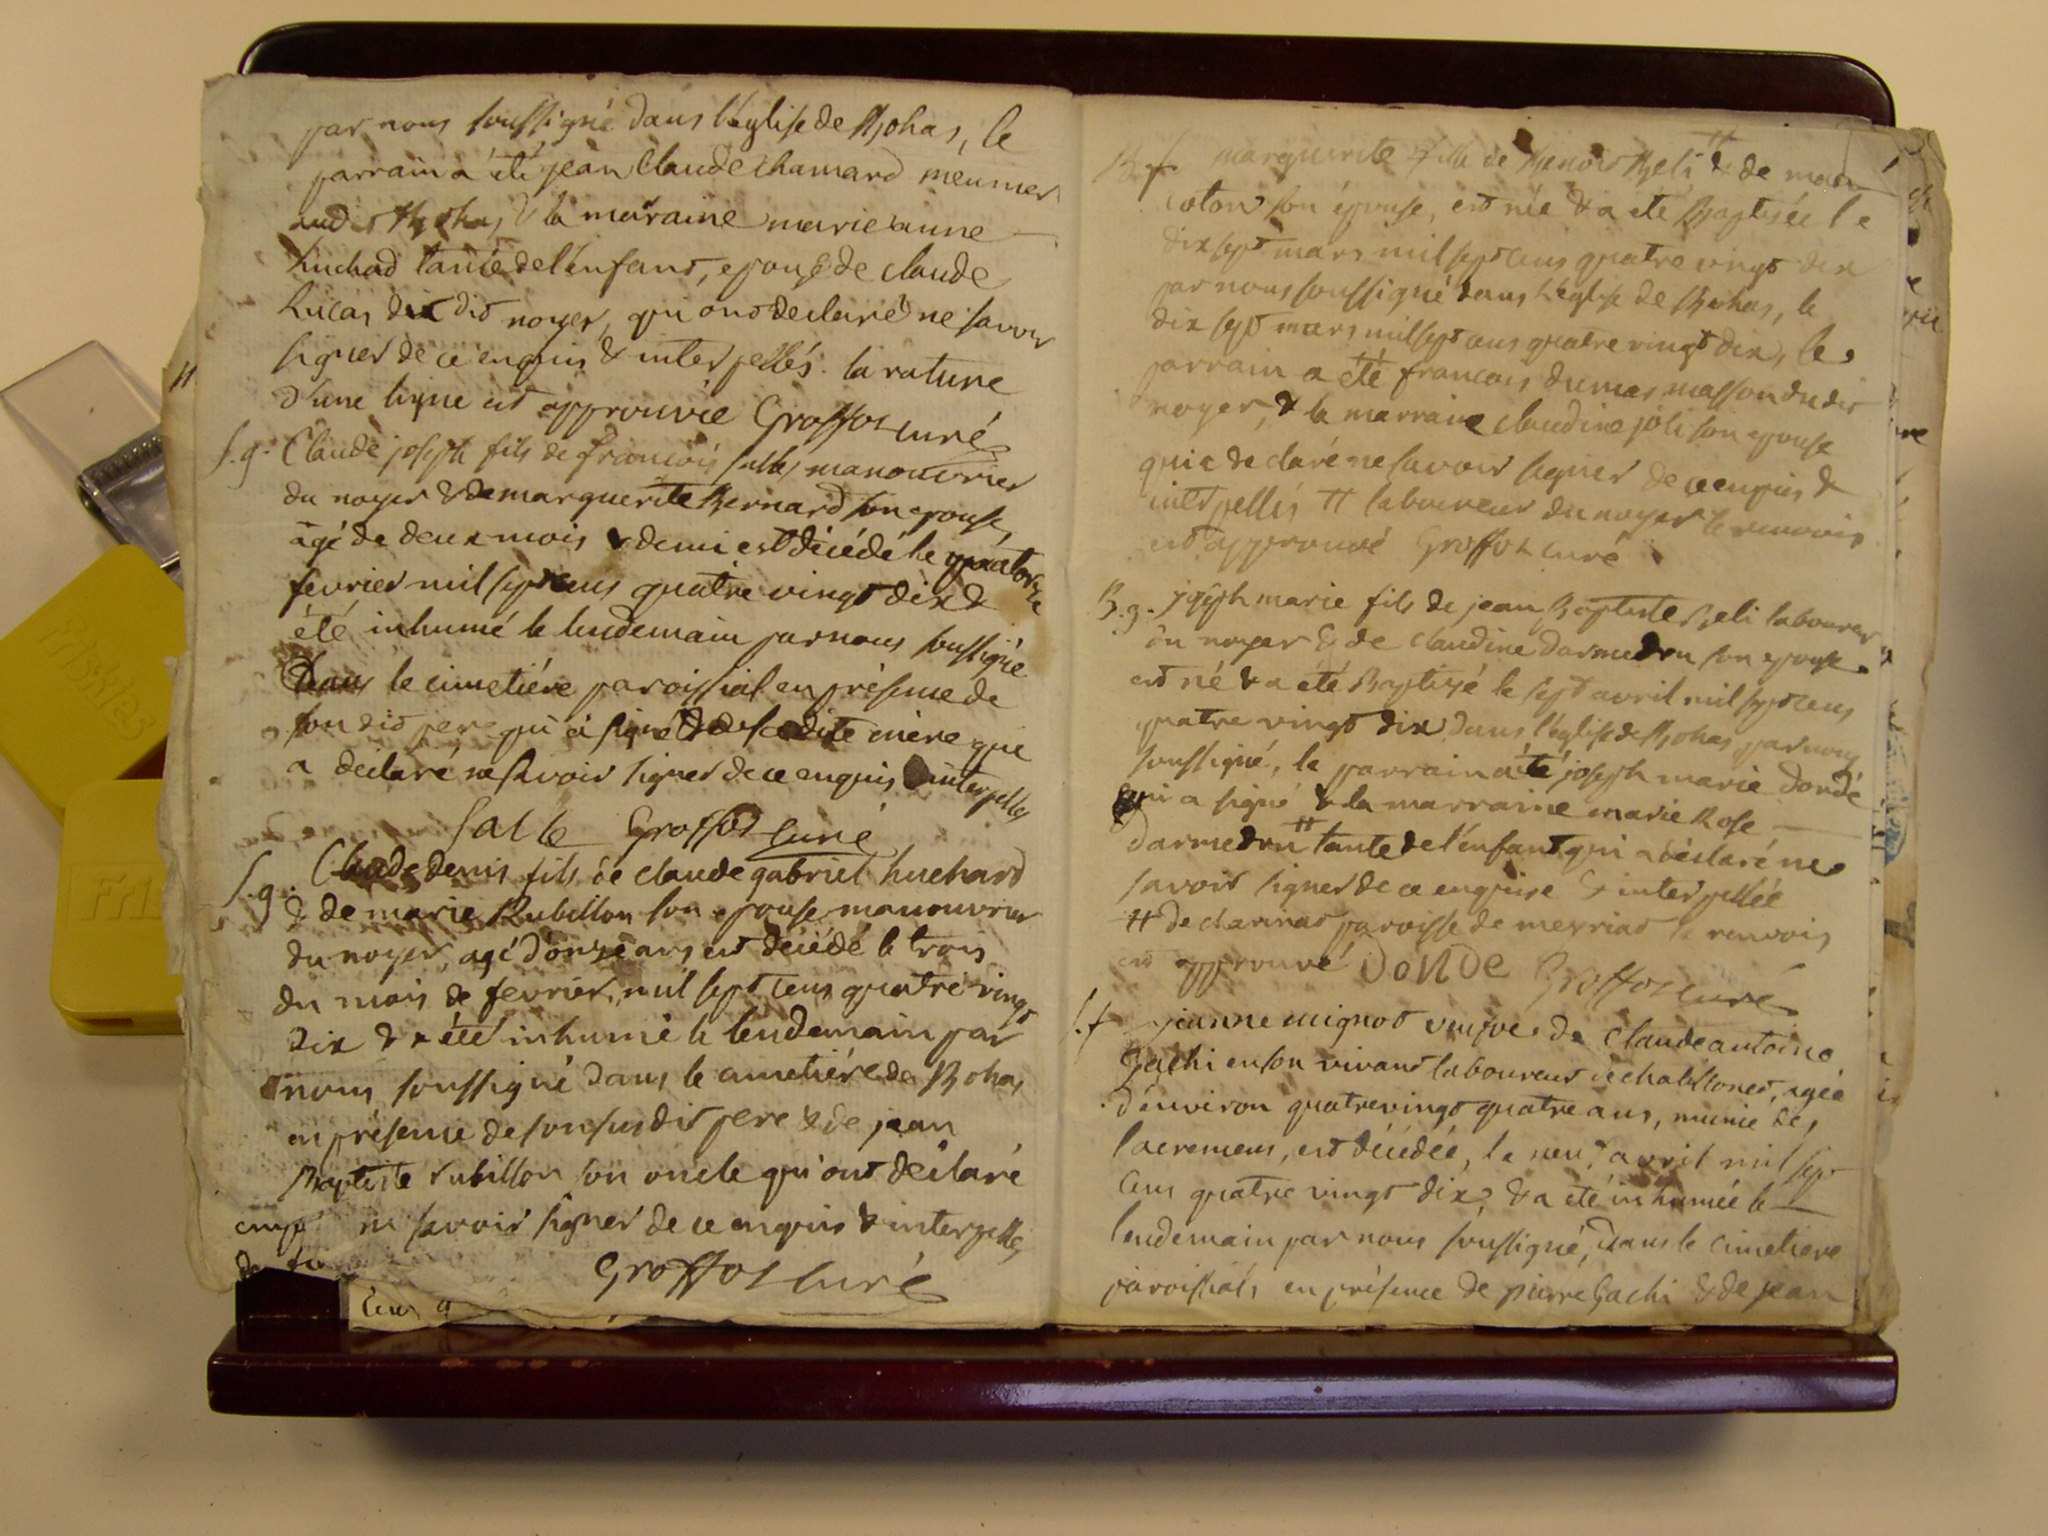 par nous soussigné dans l'église de Bohas, le
parrain a été jean Claude Chamard meunier
dudit Bohas & la maraine marie anne
huchad tante de l'enfant, epouse de claude
Lucas dit noyer, qui ont déclaré ne savoir
signer de ce enquis & interpellés. la rature
d'une ligne est approuvée Groffoz curé
S.g. Claude joseph fils de francois salles manouvrier
du noyer & de marguerite Bernard son epouse,
âgé de deux mois & demi est décédé le quatorze
fevrier mil sept cens quatre vingt dix &
été inhumé le lendemain par nous soussigné
Dans le cimetiére paroissial en présence de
son dit pere qui a signé & de sa dite mére qui
a déclaré ne savoir signer de ce enquis & interpellés
Salle Groffoz curé
S.g. Claude denis fils de claude gabriel huchard
& de marie Rubillon son epouse manouvrier
du noyer, agé d'onze ans est décédé le trois
du mois de fevrier, mil sept cens quatre vingt
dix & a été inhumé le lendemain par
nous soussigné dans le cimetiére de Bohas
en présence de son susdit pere & de jean
Baptiste rubillon son oncle qui ont déclaré
ne savoir signer de ce enquis & interpellés
Groffoz curé
Cens
B.f. marguerite fille de Benoit Beli # & de marie
coton son épouse, est née & a eté Baptisée le
dix sept mars mil sept cens quatre vingt dix
par nous soussigné dans l'église de Bohas, le
dix sept mars mil sept cens quatre vingt dix, le
parrain a été francois dumas masson dudit
noyer, & la marraine claudine joli son epouse
qui a declaré ne savoir signer de ce enquis &
interpellés # laboureur du noyer le renvois
est approuvé Groffoz curé
B.g. joseph marie fils de jean Baptiste Beli laboureur
du noyer & de claudine darmedru son epouse
est né & a été Baptizé le sept avril mil sept cens
quatre vingt dix dans l'église de Bohas par nous
soussigné, le parrain a été joseph marie Dondé
qui a signé & la marraine marie Rose
darmedru # tante de l'enfant qui a déclaré ne
savoir signer de ce enquise & interpellée
# de clarinat paroisse de meyriat le renvois
est approuvé DONDE Groffoz curé
S.f jeanne mignot veufve de Claude antoine
Gachi en son vivant laboureur de chatillonet, agée
d'environ quatre vingt quatre ans, munie des
sacremens, est décédée, le neuf avril mil sept
cens quatre vingt dix, & a eté inhumée le
lendemain par nous soussigné, dans le cimetiere
paroissials en présence de pierre Gachi & de jean